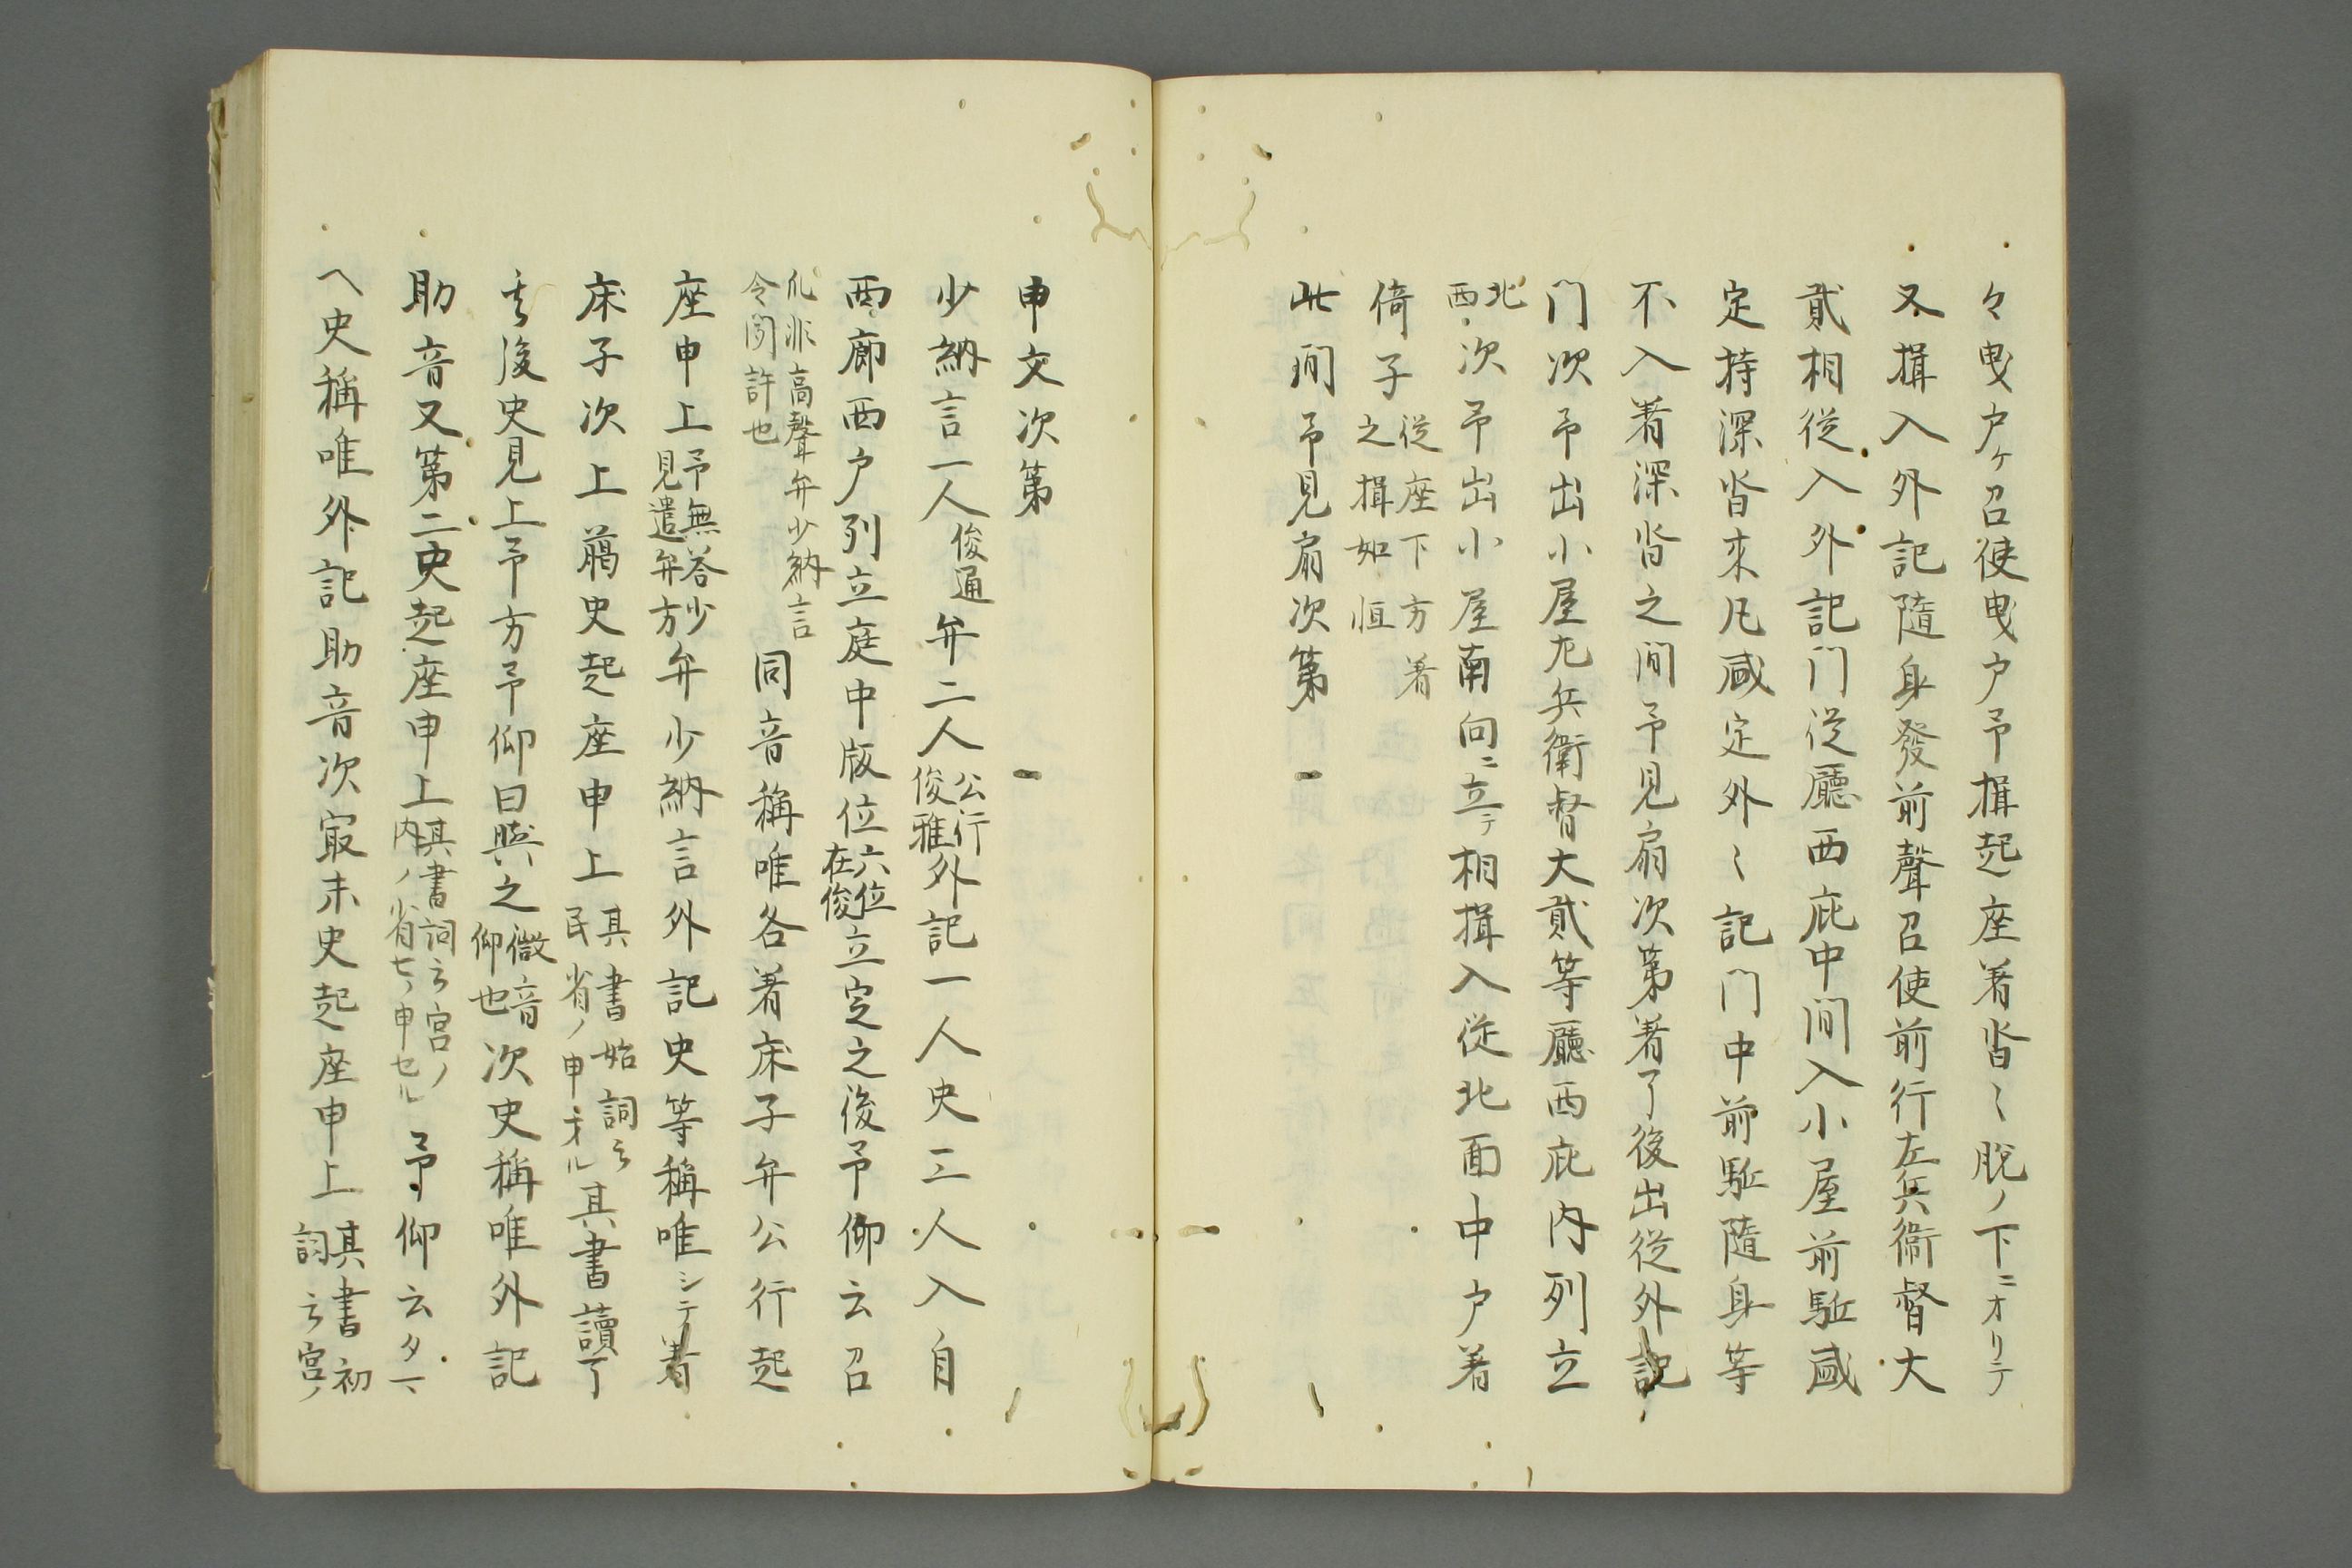 々曳戸ヶ召使曳戸予揖起座著沓〻脱ノ下ニオリテ
又揖入外記隨身發前聲召使前行左兵衞督大
貳相從入外記門從廳西庇中間入小屋前駈咸
定持深沓來凡咸定外〻記門中前駈隨身等
不入著深沓之間予見扇次第著了後出從外記
门次予出小屋左兵衞督大貳等廳西庇内列立
北
西次予出小屋南向ニ立テ相揖入從北面中戸著
倚子從座下方著
之揖如恒
此間予見扇次第
申文次第
少納言一人俊通弁二人公行
俊雅外記一人史三人入自
西廊西戸列立庭中版位六位
在後立定之後予仰云召
仉非高聲弁少納言
令聞許也同音稱唯各著床子弁公行起
座申上予無答
見遣弁方少弁少納言外記史等稱唯シテ著
床子次上﨟史起座申上其書始詞云
民省ノ申オル其書讀了
後史見上予方予仰曰與之微音
仰也次史稱唯外記
助音又第二史起座申上其書詞云宮ノ
内ノ省セノ申セル予仰云タマ
ヘ史稱唯外記助音次㝡末史起座申上其書初
詞云宮ノ